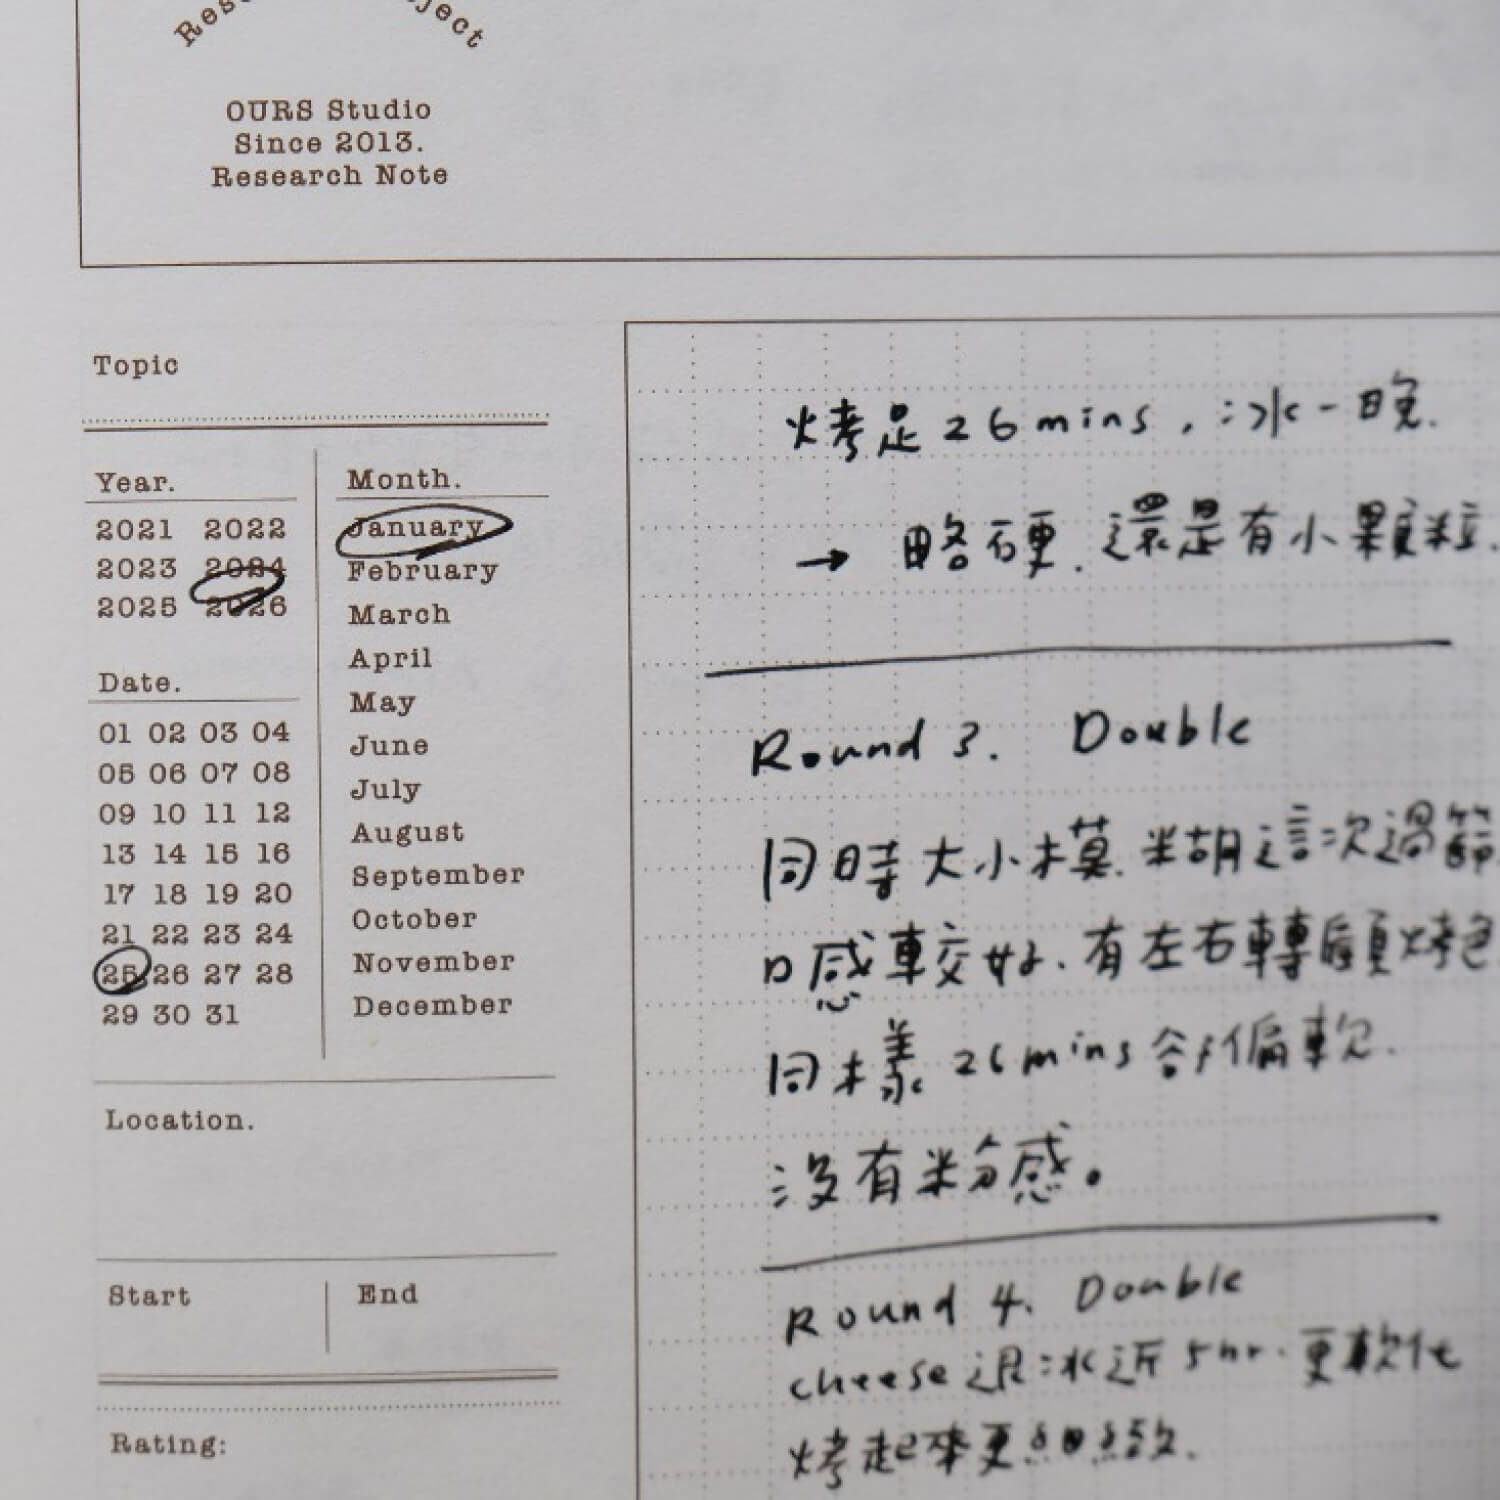 OURS Studio
Since 2013.
Research Note
Topic
Year.
2021 2022
2023 2024
2025 2026
Date.
01 02 03 04
05 06 07 08
09 10 11 12
13 14 15 16
17 18 19 20
21 22 23 24
25 26 27 28
29 30 31
Month.
January
February
March
April
May
June
July
August
September
October
November
December
Location.
Start
End
Rating:
烤足26mins,冰一晚.
→ 略硬.還是有小顆粒.
Round 3. Double
同時大小模.米胡這次過篩
口感較好.有左右轉順烤色
同樣26mins 偏軟.
沒有粉感。
Round 4. Double
cheese退冰近5hr.更軟化
烤起來更細緻.